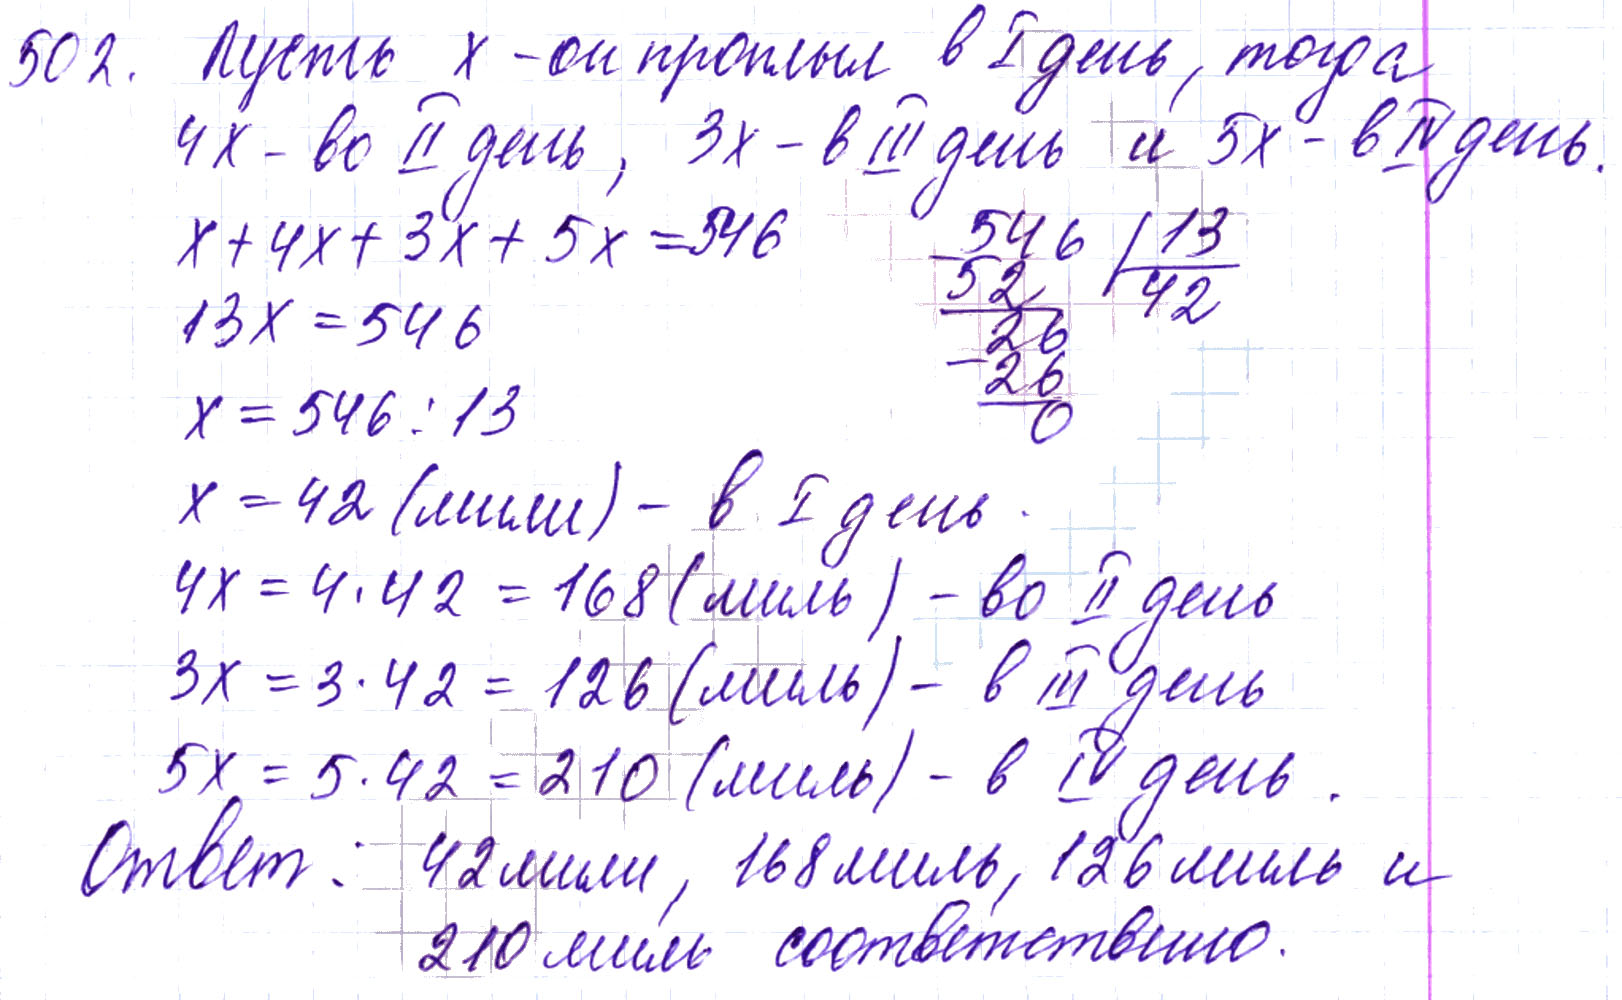 502. Пусть x - он проплыл в I день, тогда
4x - во II день, 3x - в III день и 5x - в IV день.
x + 4x + 3x + 5x = 546
13x = 546
x = 546 : 13
546 | 13
- 52 42
26
- 26
0
x = 42 (мили) - в I день.
4x = 4 · 42 = 168 (миль) - во II день
3x = 3 · 42 = 126 (миль) - в III день
5x = 5 · 42 = 210 (миль) - в IV день.
Ответ: 42 мили, 168 миль, 126 миль и
210 миль соответственно.